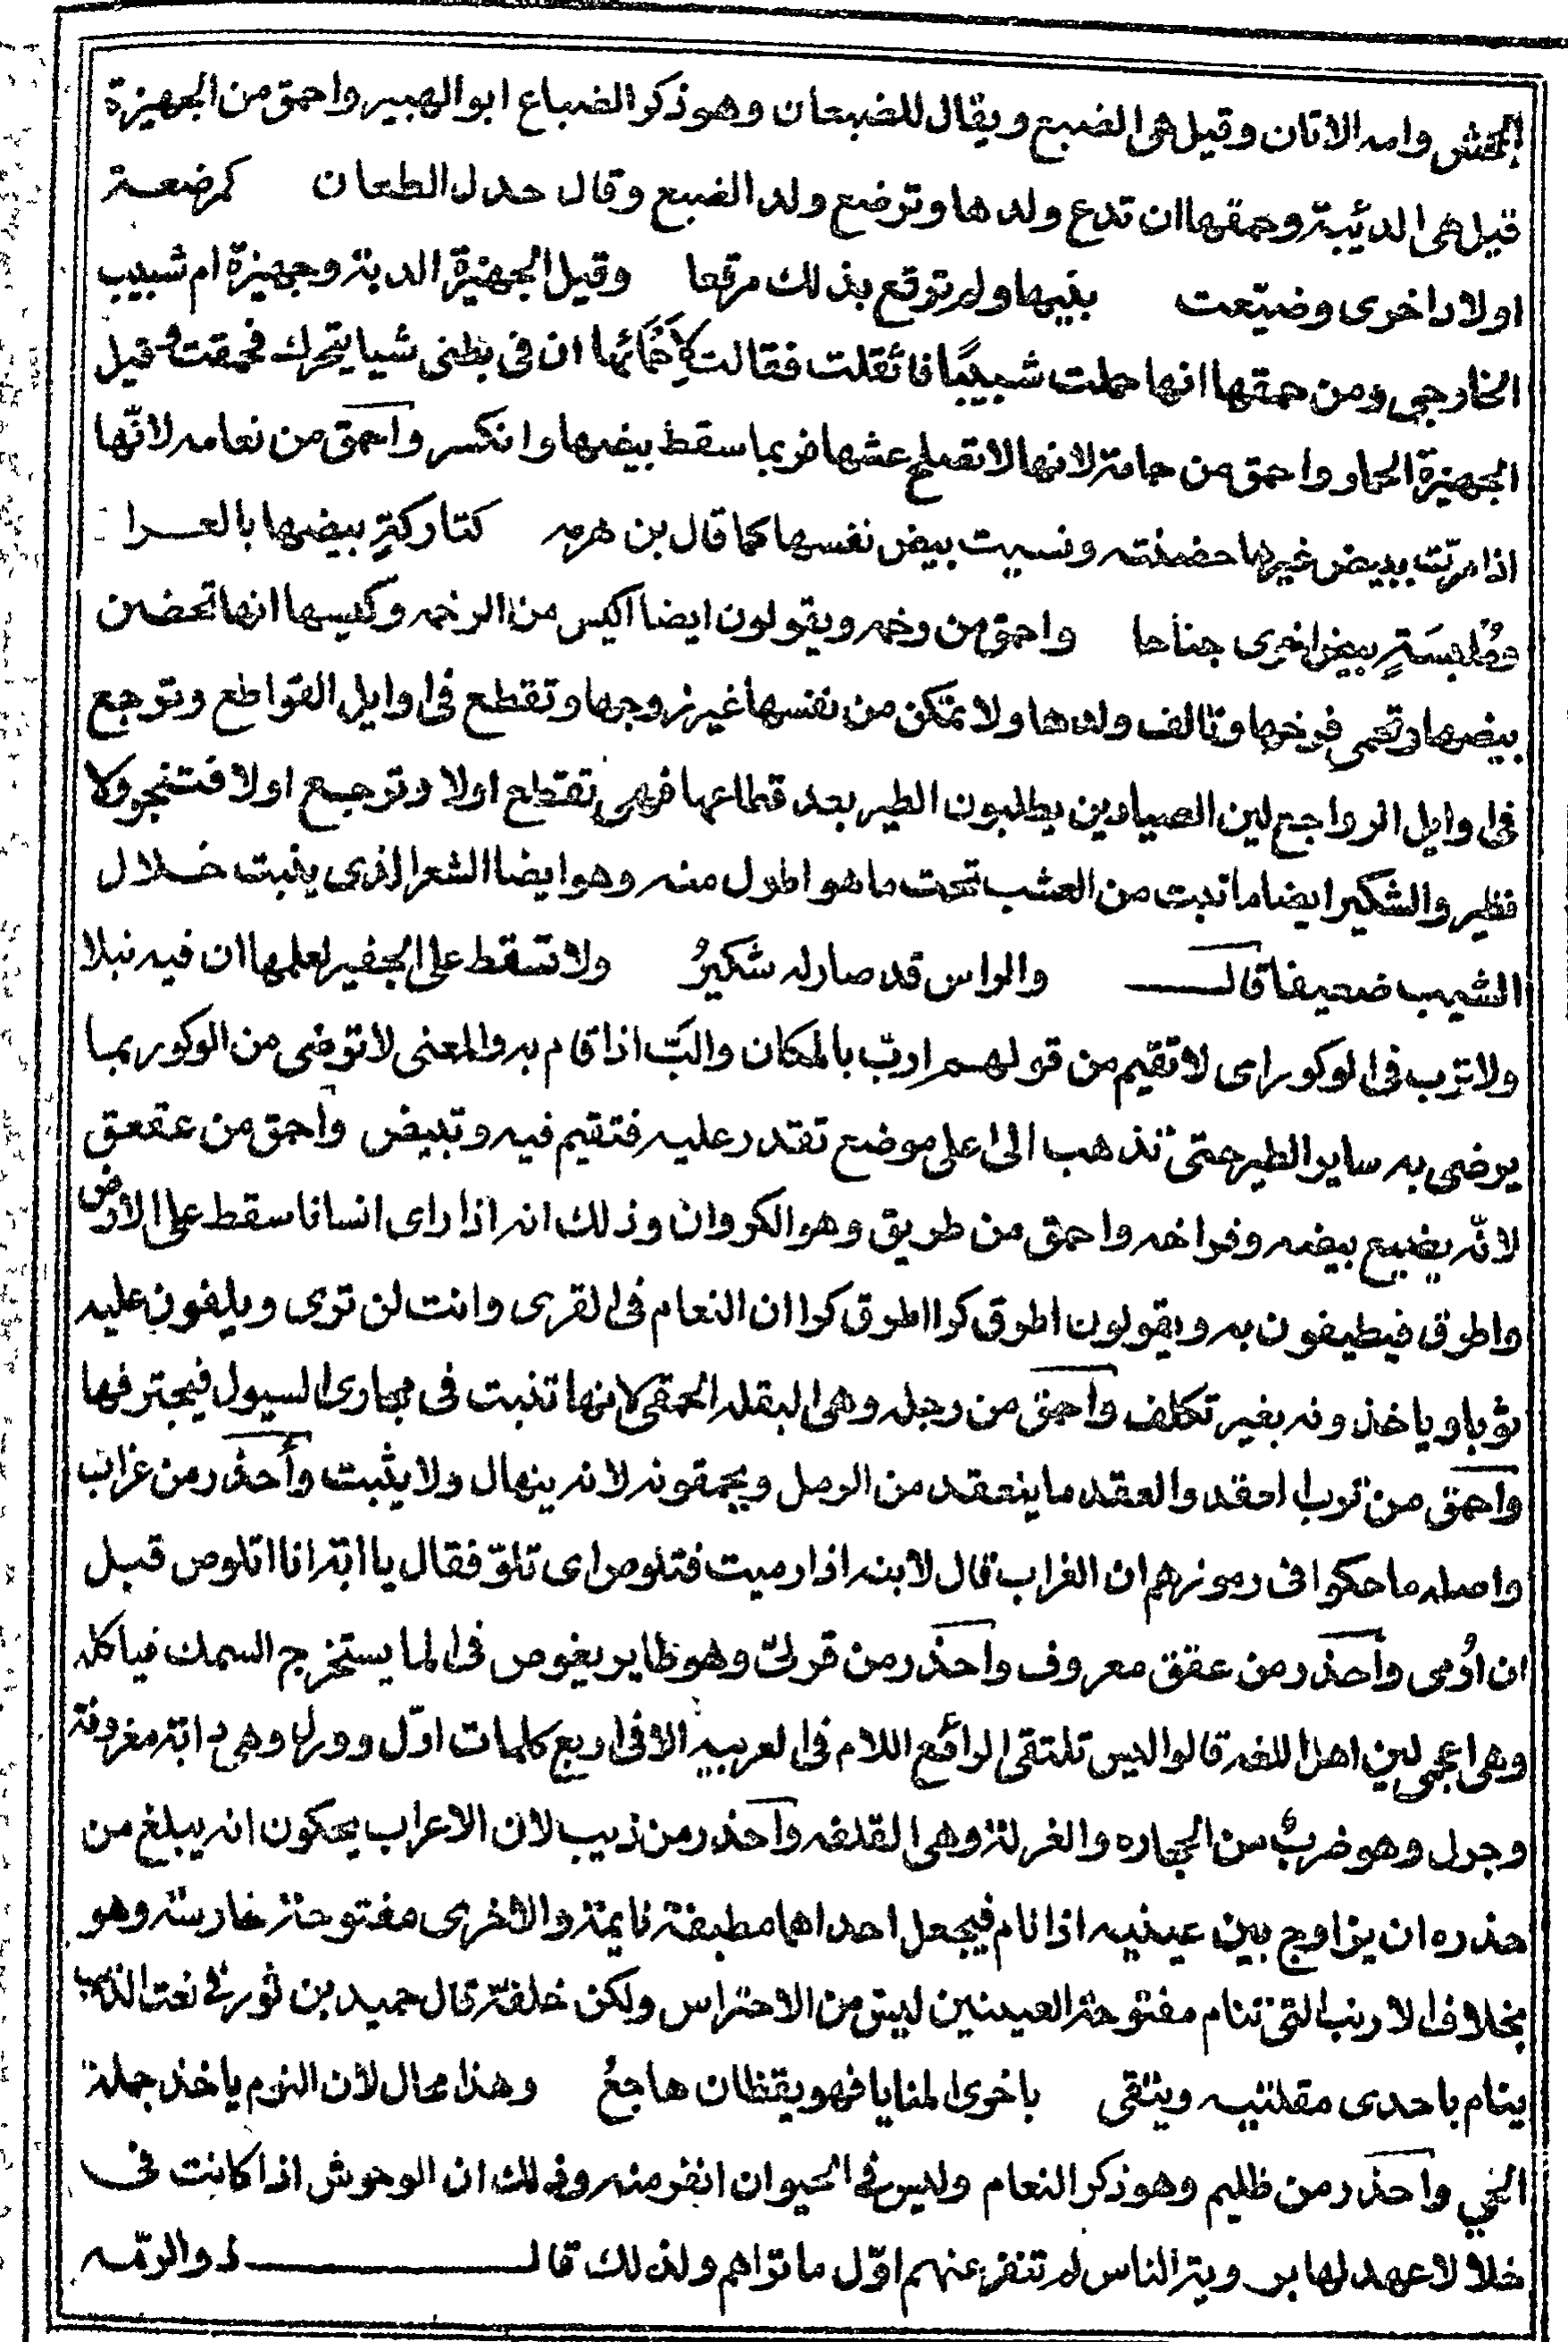 الجحش وامه الاتان وقيل هى الضبع ويقال للضبعان وهو ذكر الضباع ابو الهبير واحمق من الجهيزة
قيل هى الدئيبة وحمقها ان تدع ولدها وترضع ولد الضبع وقال حدل الطعان كمرضعة
اولاد اخرى وضيّعت بنيها ولم ترقع بذلك مرقعا وقيل الجهيزة الدبة وجهيزة ام شبيب
الخارجى ومن حمقها انها حملت شبيبًا فاثقلت فقالت لاحمائها ان فى بطنى شيا يتحرك فحمقت وقيل
الجهيزة الحمار واحمق من حمامة لانها لا تصلح عشها فربما سقط بيضها وانكسر واحمق من نعامه لانّها
اذا مرّت ببيض غيرها حضنته ونسيت بيض نفسها كما قال بن هرمه كتاركةٍ بيضها بالعرا
ومُلبسَةٍ بيض اخرى جناحا واحمق من رخمه ويقولون ايضا اكيس من الرخمه وكيسها انها تحضن
بيضها وتحمى فرخها وتالف ولدها ولا تمكن من نفسها غير زوجها وتقطع فى اوايل القواطع وترجع
فى اوايل الرواجع لين الصيادين يطلبون الطير بعد قطاعها فهى تقطع اولا وترجع اولا فتنجو ولا
فطير والشكير ايضا ما نبت من العشب تحت ما هو اطول منه وهو ايضا الشعر الذى ينبت خلال
الشيب ضعيفا قال والراس قد صار له شكيرُ ولا تسقط على الجفير لعلمها ان فيه نبلا
ولا ترب فى الوكور اى لا تقيم من قولهم ارب بالمكان والبّ اذا قام به والمعنى لا ترضى من الوكور بما
يرضى به ساير الطير حتى تذهب الى اعلى موضع تقدر عليه فتقيم فيه وتبيض واحمق من عقعق
لانّه يضيع بيضه وفراخه واحمق من طريق وهو الكروان وذلك انه اذا راى انسانا سقط على الارض
واطرق فيطيفون به ويقولون اطرق كرا اطرق كرا ان النعام فى القرى وانت لن ترى ويلفون عليه
ثوبا وياخذونه بغير تكلف واحمق من رجله وهى البقله الحمقى لانها تنبت فى مجارى السيول فيجترفها
واحمق من ترب احقد والعقد ما ينعقد من الرمل ويحمقونه لانه ينهال ولا يثبت وأحذر من غراب
واصله ما حكوا فى رموزهم ان الغراب قال لابنه اذا رميت فتلوص اى تلوّ فقال يا ابة انا اتلوص قبل
ان اُرمى وأحذر من عقق معروف واحذر من قرلى وهو طاير يغوص فى الما يستخرج السمك فياكله
وهى اعجمى لين اهل اللغه قالوا ليس تلتقى الرا مع اللام فى العربيه الا فى اربع كلمات ارل وورل وهى دابة معروفة
وجرل وهو ضربٌ من الحجاره والغرلة وهى القلفه واحذر من ذيب لان الاعراب يحكون انه يبلغ من
حذره ان يزاوج بين عينيه اذا نام فيجعل احداهما مطبقة نايمة والاخرى مفتوحة حارسة وهو
بخلاف الارنب التى تنام مفتوحة العينين ليس من الاحتراس ولكن خلقة قال حميد بن ثور فى نعت الذيب
ينام باحدى مقلتيه ويتقى باخرى المنايا فهو يقظان هاجعُ وهذا محال لان النوم ياخذ جملة
الحي واحذر من ظليم وهو ذكر النعام وليس فى الحيوان انفر منه وذلك ان الوحوش اذا كانت فى
خلا لا عهد لها برويت الناس لم تنفر عنهم اوّل ما تراهم ولذلك قال ذو الرمّه